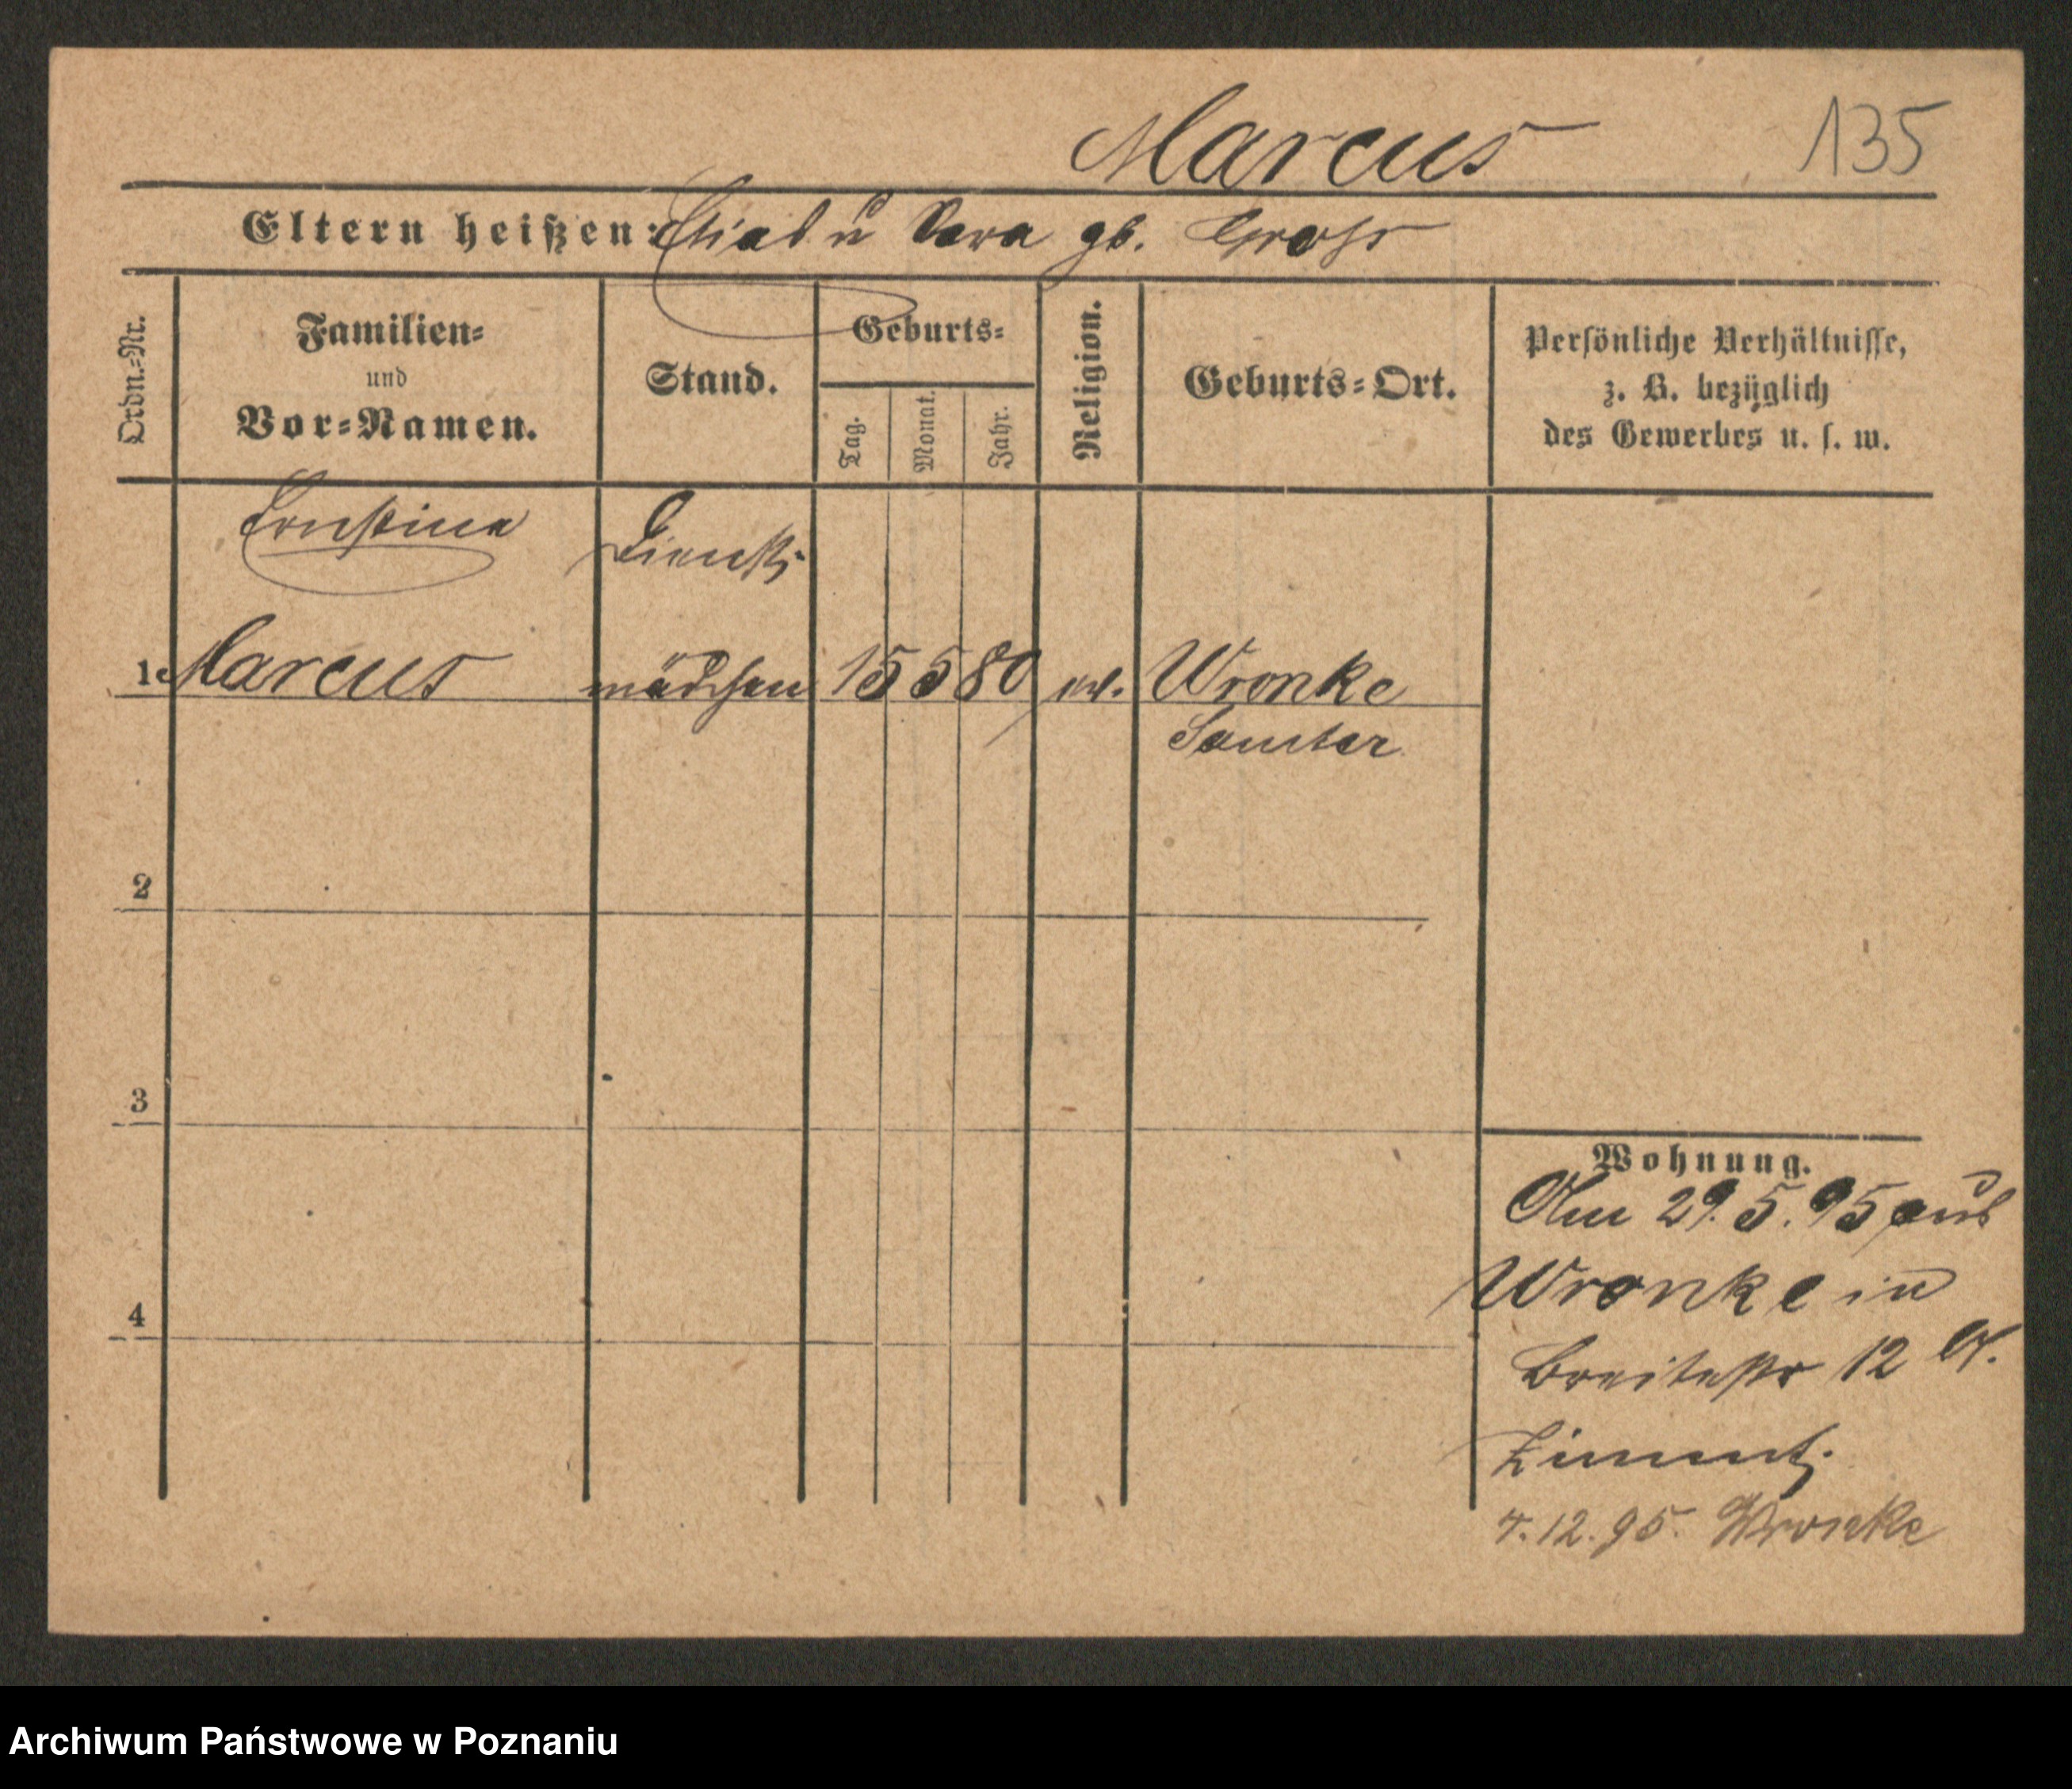 Marcus
135
Eltern heißen: Elias u Sara gb. Gross
Ordn.-Nr.
Familien-
und
Vor-Namen.
Stand.
Geburts-
Tag.
Monat.
Jahr.
Religion.
Geburts-Ort.
Persönliche Verhältnisse,
z. B. bezüglich
des Gewerbes u. s. w.
Ernstine
Dienst-
1 Marcus mädchen 15 5 80 Wronke
Samter
2
3
4
Wohnung.
Am 29.5.95 aus
Wronke in
Breitestr 12
7.12.95. Wronke
Archiwum Państwowe w Poznaniu